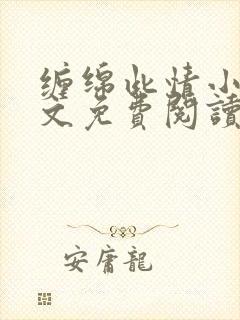 缠绵此情小
文免費閱讀
安庸龍